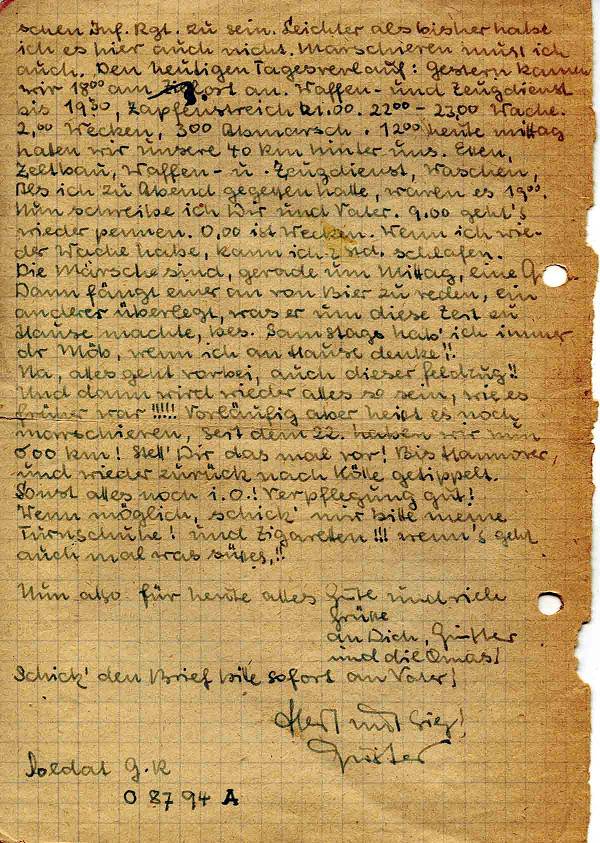 schen Inf. Rgt. zu sein. Leichter als bisher habe
ich es hier auch nicht. Marschieren muss ich
auch. Den heutigen Tagesverlauf: Gestern kamen
wir 18⁰⁰ am an. Waffen- und Zeugdienst
bis 19³⁰, Zapfenstreich 21.00. 22⁰⁰ - 23.00 Wache.
2,00 Wecken, 3⁰⁰ Abmarsch. 12⁰⁰ heute mittag
hatten wir unsere 40 km hinter uns. Essen,
Zeltbau, Waffen- u. Zeugdienst, Waschen,
Als ich zu Abend gegessen hatte, waren es 19⁰⁰.
Nun schreibe ich Dir und Vater. 9.00 geht's
wieder pennen. 0,00 ist Wecken. Wenn ich wie-
der Wache habe, kann ich 2 Std. schlafen.
Die Märsche sind, gerade um Mittag, eine
Dann fängt einer an von Bier zu reden, ein
anderer überlegt, was er um diese Zeit zu
Hause machte, bes. Samstags hab' ich immer
dr Möb, wenn ich an Hause denke!!
Na, alles geht vorbei, auch dieser Feldzug!!
Und dann wird wieder alles so sein, wie es
früher war !!!!! Vorläufig aber heißt es noch
marschieren, seit dem 22. haben wir nun
600 km! Stell' Dir das mal vor! Bis Hannover,
und wieder zurück nach Kölle getippelt.
Sonst alles noch i.O.! Verpflegung gut!
Wenn möglich, schick' mir bitte meine
Turnschuhe! und Zigaretten !!! wenn's geht
auch mal was süßes,!!
Nun also für heute alles Gute und viele
Grüße
an Dich, Günter
und die Omas!
Schick' den Brief bitte sofort an Vater!
und Sieg!
Günter
Soldat G. K
0 87 94 A